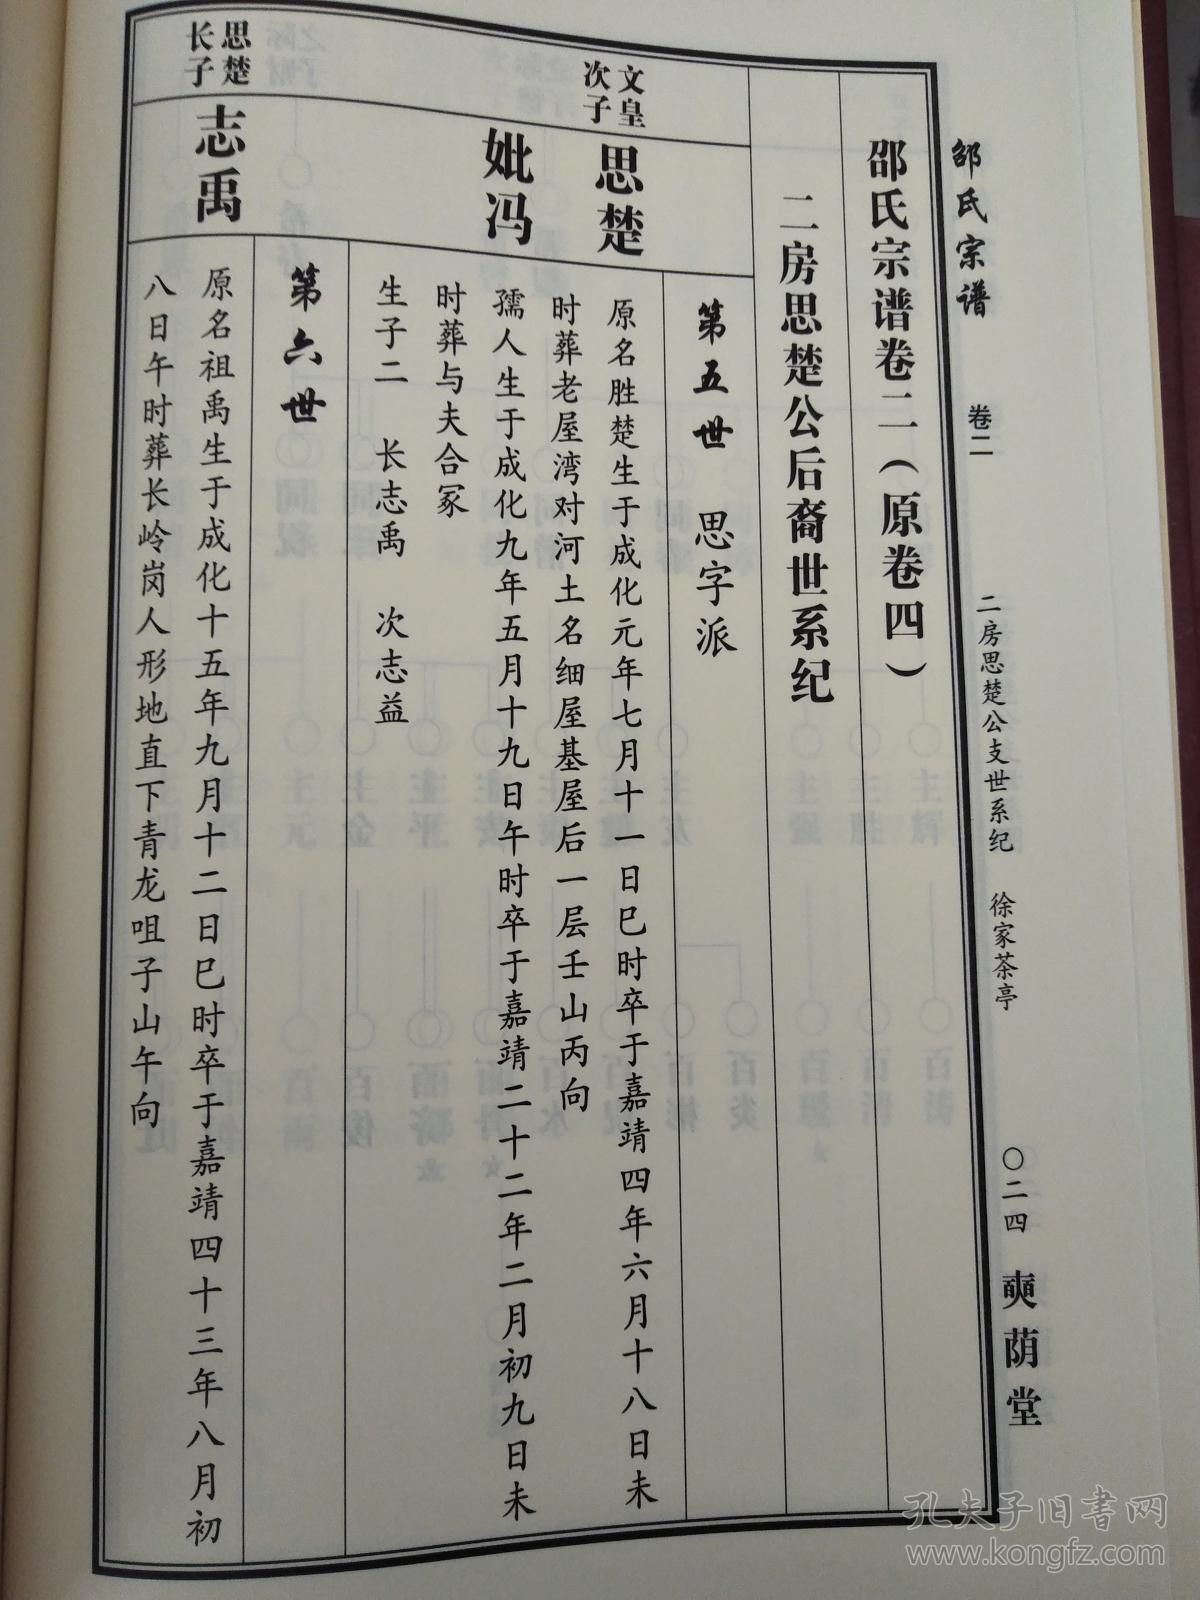 邵氏宗谱 卷二 二房思楚公支世系纪 徐家茶亭 〇二四 奭荫堂
邵氏宗谱卷二（原卷四）
二房思楚公后裔世系纪
第五世 思字派
文皇
次子
思楚
原名胜楚生于成化元年七月十一日巳时卒于嘉靖四年六月十八日未
时葬老屋湾对河土名细屋基屋后一层壬山丙向
妣冯
孺人生于成化九年五月十九日午时卒于嘉靖二十二年二月初九日未
时葬与夫合冢
生子二 长志禹 次志益
第六世
思楚
长子
志禹
原名祖禹生于成化十五年九月十二日巳时卒于嘉靖四十三年八月初
八日午时葬长岭岗人形地直下青龙咀子山午向
孔夫子旧书网
www.kongfz.com